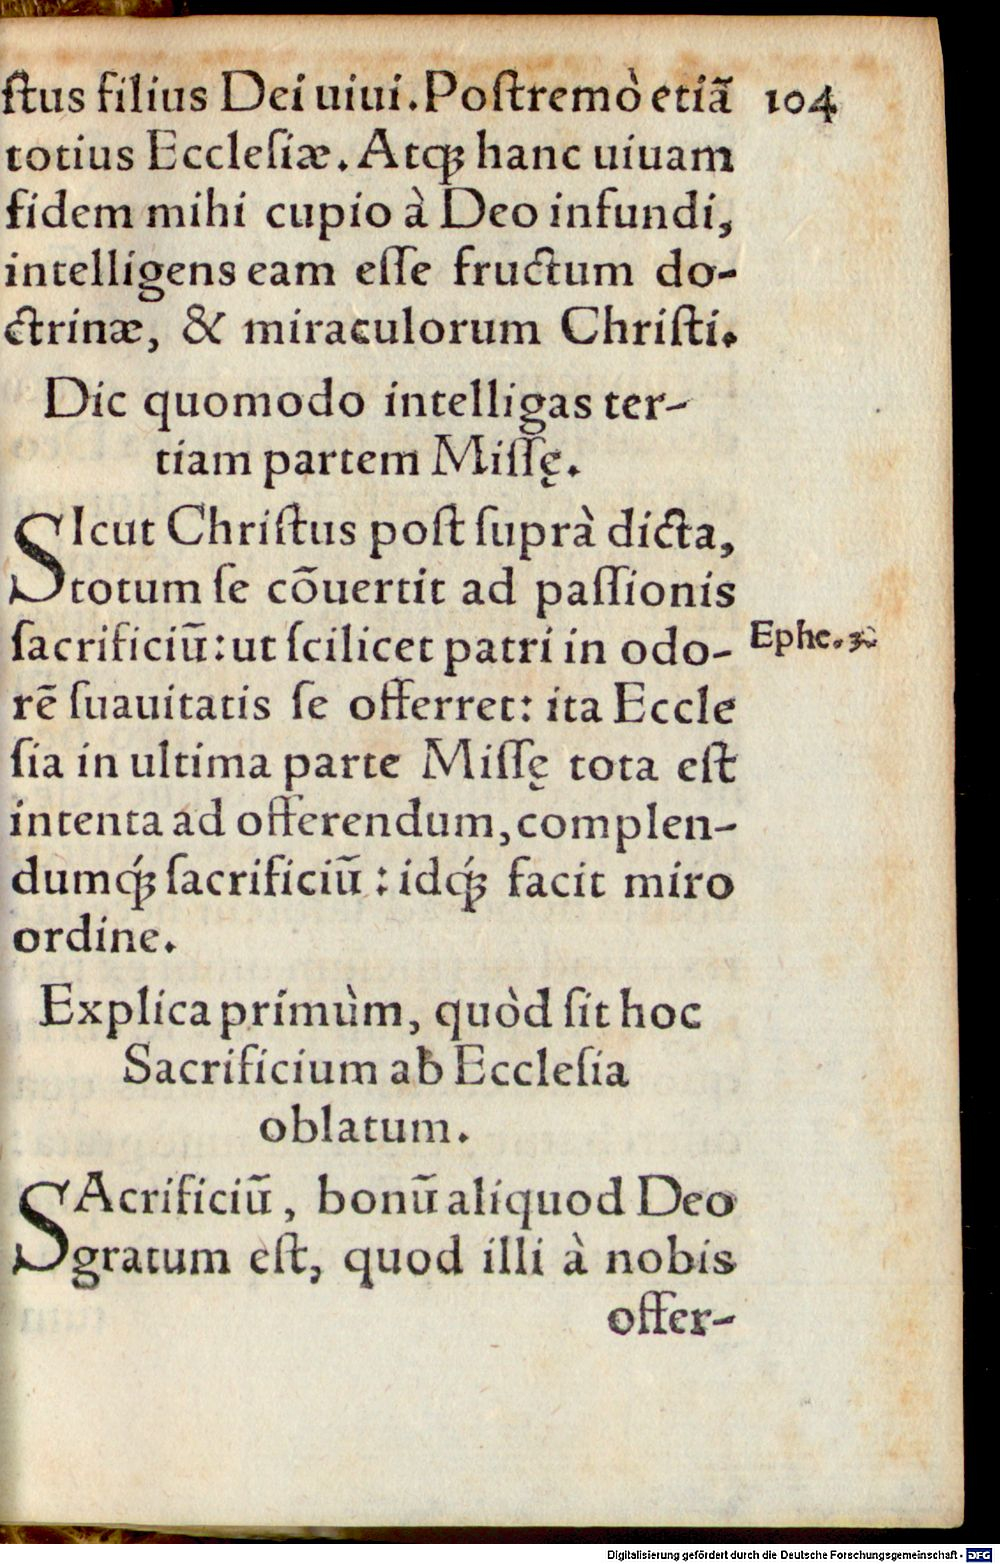 ſtus filius Dei uiui. Poſtremò etiā 104
totius Eccleſiæ. Atq́; hanc uiuam
fidem mihi cupio à Deo infundi,
intelligens eam eſſe fructum do-
ctrinæ, & miraculorum Chriſti.
Dic quomodo intelligas ter-
tiam partem Miſſę.
SIcut Chriſtus poſt ſuprà dicta,
totum ſe cōuertit ad paſſionis
ſacrificiū: ut ſcilicet patri in odo-
Ephe.
rē ſuauitatis ſe offerret: ita Eccle
ſia in ultima parte Miſſę tota eſt
intenta ad offerendum, complen-
dumq́; ſacrificiū: idq́; facit miro
ordine.
Explica primùm, quòd ſit hoc
Sacrificium ab Eccleſia
oblatum.
SAcrificiū, bonū aliquod Deo
gratum eſt, quod illi à nobis
offer-
Digitalisierung gefördert durch die Deutsche Forschungsgemeinschaft - DFG